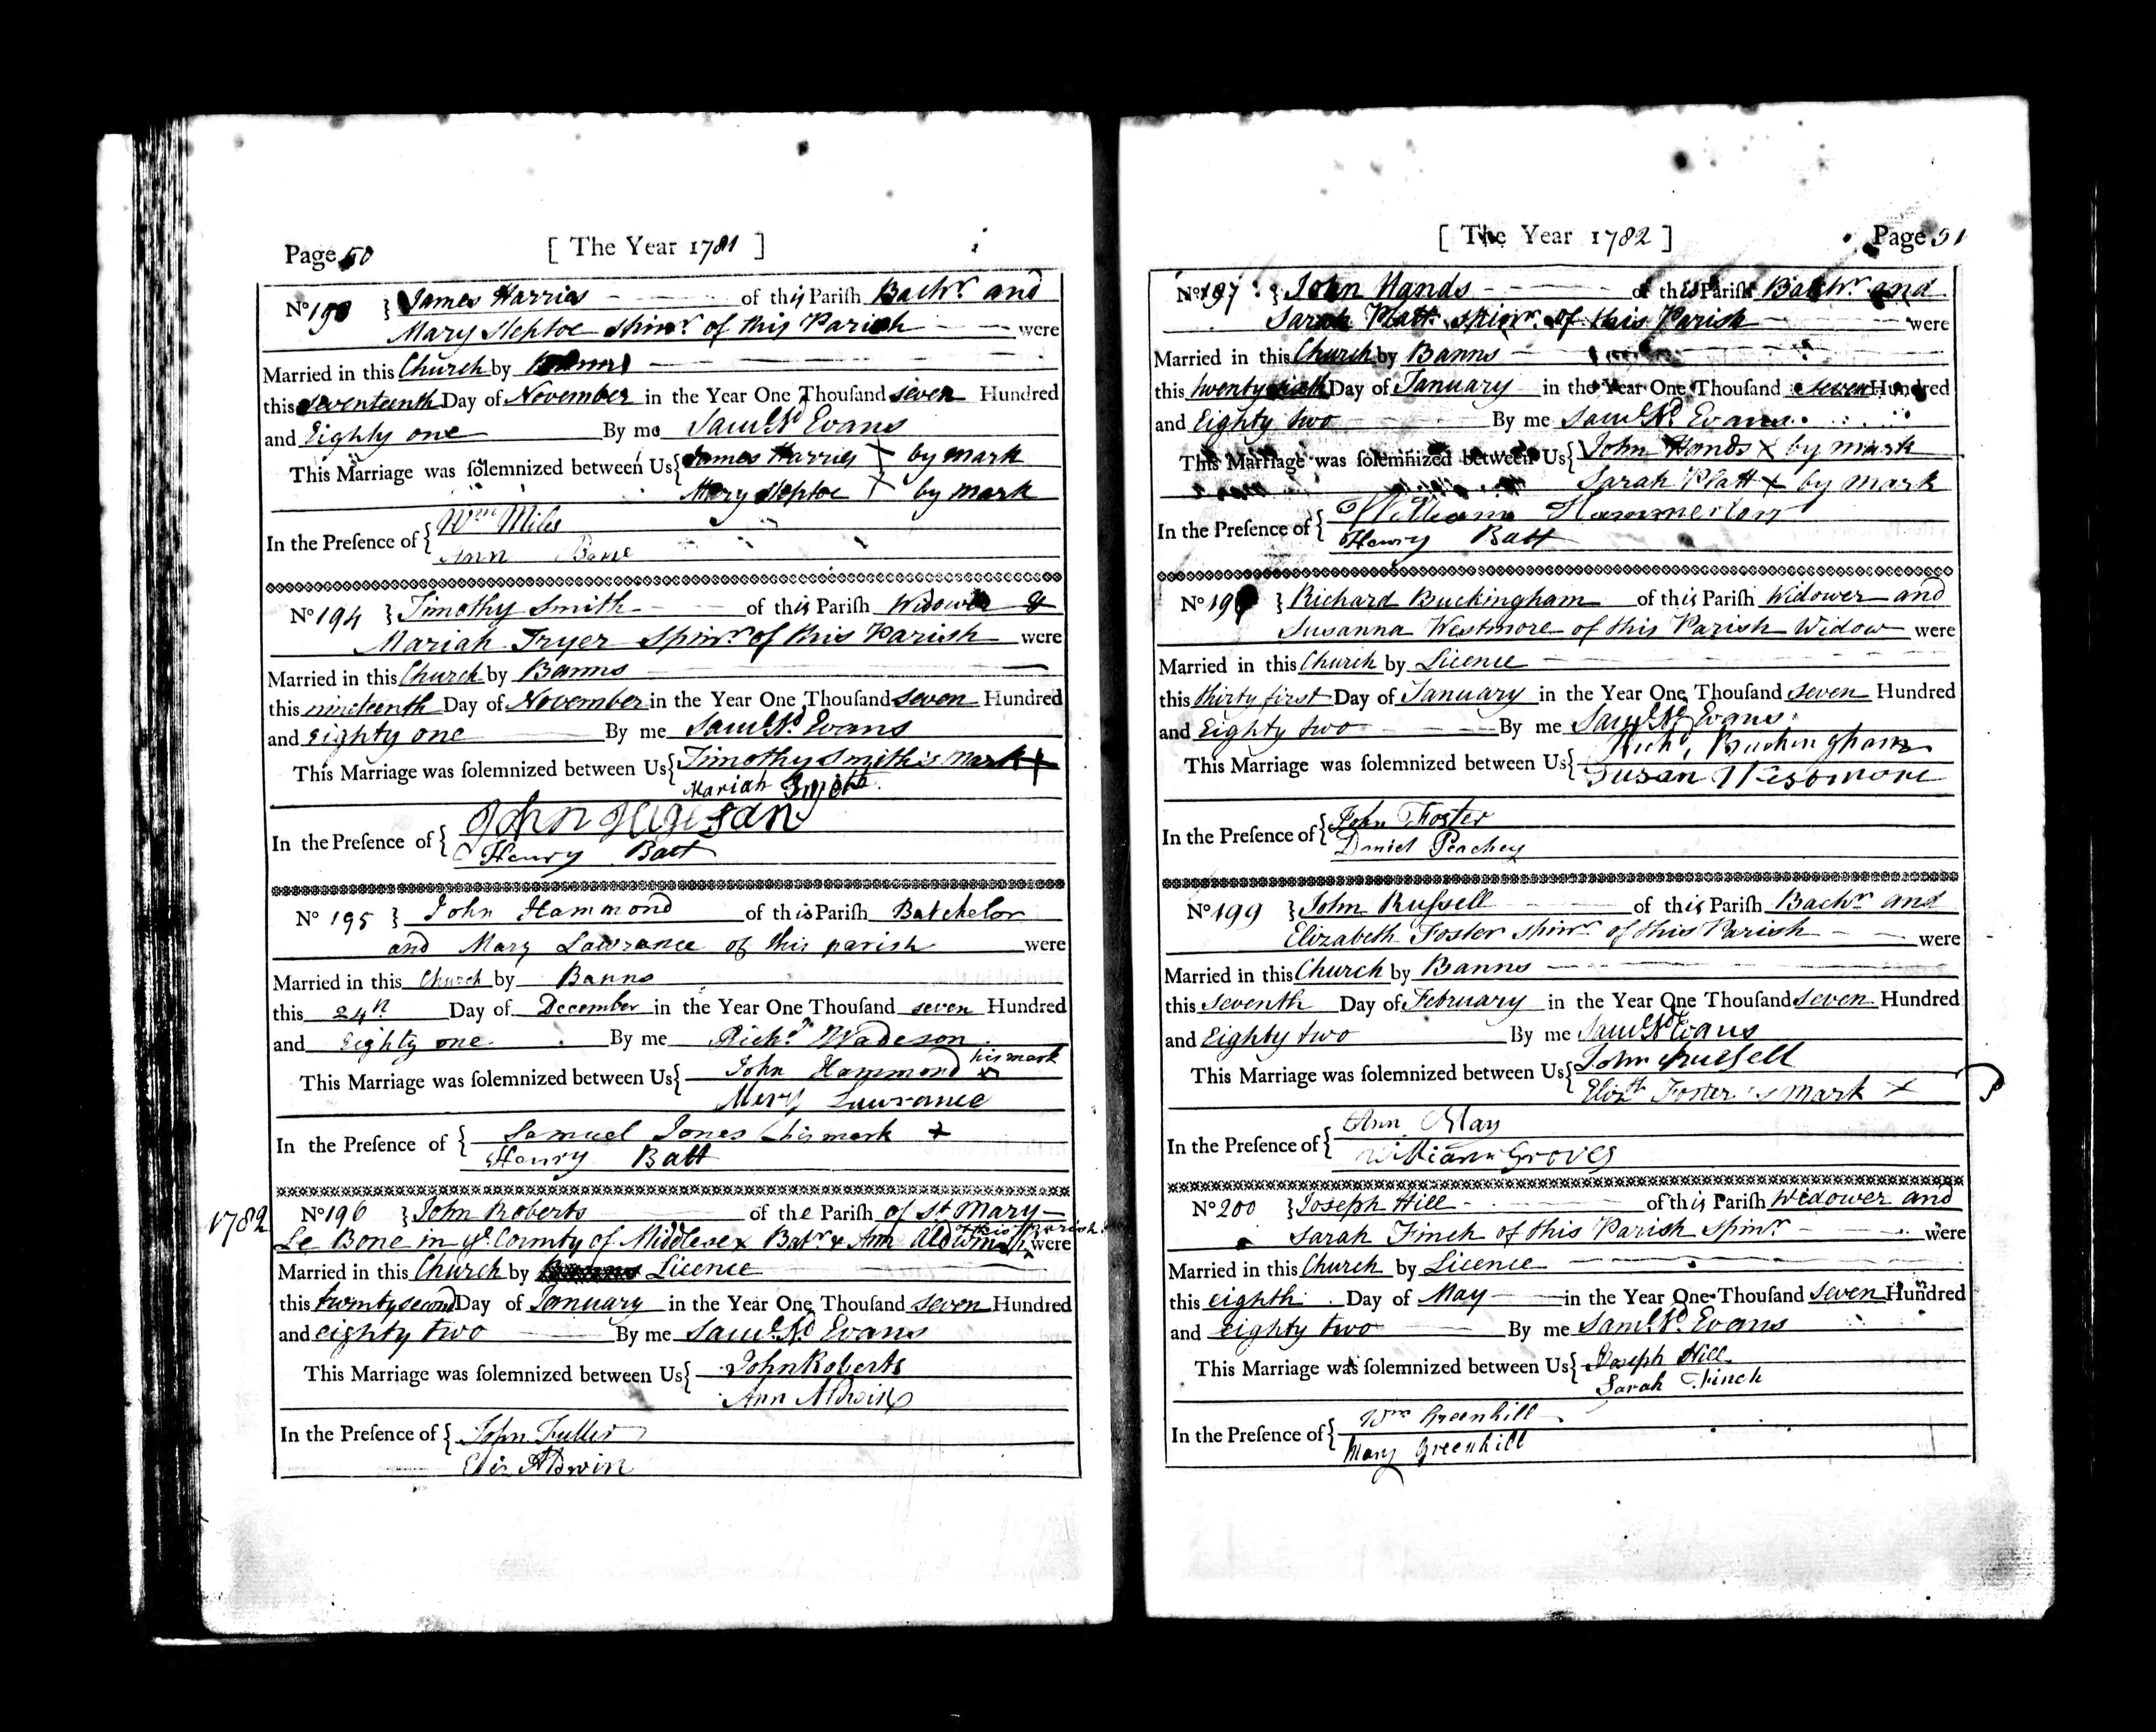 Page 50 [ The Year 1781 ]
No 193 } James Harries of this Parish Bachr. and
Mary Steptoe Spinr. of this Parish were
Married in this Church by Banns
this seventeenth Day of November in the Year One Thousand seven Hundred
and Eighty one By me Saml. Nd. Evans
This Marriage was solemnized between Us { James Harries X by mark
Mary Steptoe X by mark
In the Presence of { Wm Miles
Ann
No 194 } Timothy Smith of this Parish Widower &
Mariah Fryer Spinr. of this Parish were
Married in this Church by Banns
this nineteenth Day of November in the Year One Thousand seven Hundred
and Eighty one By me Saml. Nd. Evans
This Marriage was solemnized between Us { Timothy Smith's mark X
Mariah
In the Presence of { John
Henry Batt
No 195 } John Hammond of this Parish Batchelor
and Mary Lawrance of this parish were
Married in this Church by Banns
this 24th Day of December in the Year One Thousand seven Hundred
and Eighty one By me Richd. Wadeson
This Marriage was solemnized between Us { John Hammond his mark X
Mery Lawrance
In the Presence of { Samuel Jones his mark X
Henry Batt
1782 No 196 } John Roberts of the Parish of St Mary
Le Bone in ye County of Middlesex Batr. & Ann Aldwin of this Parish were
Married in this Church by Licence
this twenty second Day of January in the Year One Thousand seven Hundred
and eighty two By me Saml. Nd. Evans
This Marriage was solemnized between Us { John Roberts
Ann Aldwin
In the Presence of { John Fuller
Eliz Aldwin
[ The Year 1782 ] Page 51
No 197 } John Hands of this Parish Bachr. and
Sarah Platt Spinr. of this Parish were
Married in this Church by Banns
this twenty sixth Day of January in the Year One Thousand seven Hundred
and Eighty two By me Saml. Nd. Evans
This Marriage was solemnized between Us { John Hands X by mark
Sarah Platt X by mark
In the Presence of { William Hammerton
Henry Batt
No 198 } Richard Buckingham of this Parish Widower and
Susanna Westmore of this Parish Widow were
Married in this Church by Licence
this thirty first Day of January in the Year One Thousand seven Hundred
and Eighty two By me Saml. Nd. Evans
This Marriage was solemnized between Us { Richd. Buckingham
Susan Westmore
In the Presence of { John Foster
Daniel Peachey
No 199 } John Russell of this Parish Bachr. and
Elizabeth Foster Spinr. of this Parish were
Married in this Church by Banns
this seventh Day of February in the Year One Thousand seven Hundred
and Eighty two By me Saml. Nd. Evans
This Marriage was solemnized between Us { John Russell
Elizth. Foster's mark X
In the Presence of { Ann May
William Groves
No 200 } Joseph Hill of this Parish Widower and
Sarah Finch of this Parish Spinr. were
Married in this Church by Licence
this eighth Day of May in the Year One Thousand seven Hundred
and eighty two By me Saml. Nd. Evans
This Marriage was solemnized between Us { Joseph Hill
Sarah Finch
In the Presence of { Wm Greenhill
Mary Greenhill